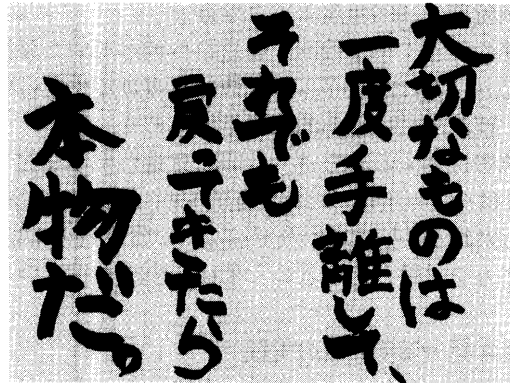 大切なものは
一度手離して、
それでも
戻ってきたら
本物だ。